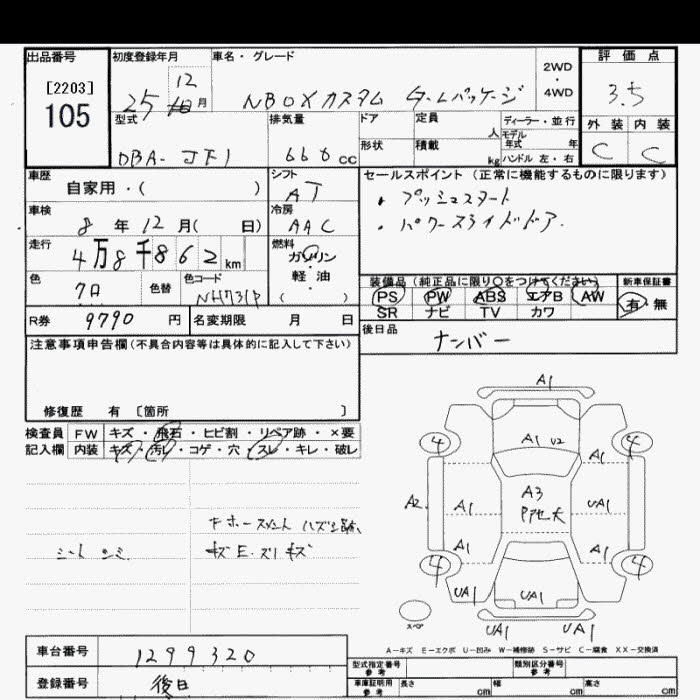 出品番号
[2203]
105
初度登録年月
25 12 月
車名・グレード
NBOXカスタム ターボパッケージ
2WD
・
4WD
評価点
3.5
外装 内装
C C
型式
DBA-JF1
排気量
660 cc
ドア
定員
人
ディーラー・並行
形状
積載
kg
モデル年式 年
ハンドル 左・右
車歴
自家用・( )
シフト
AT
車検
8 年 12 月( 日)
冷房
AAC
走行
4万8千862 km
燃料
ガソリン
・
軽油
( )
色
クロ
色替
色コード
NH731P
R券 9790 円
名変期限 月 日
セールスポイント (正常に機能するものに限ります)
・プッシュスタート
・パワースライドドア.
装備品 (純正品に限り○をつけてください)
新車保証書
PS PW ABS エアB AW
有・無
SR ナビ TV カワ
後日品
ナンバー
注意事項申告欄(不具合内容等は具体的に記入して下さい)
修復歴 有 〔箇所 〕
検査員
記入欄
FW キズ・飛石・ヒビ割・リペア跡・×要
内装 キズ・汚レ・コゲ・穴・スレ・キレ・破レ
シート シミ
キズ E. ズリキズ
A1
4 4
A1 U2
A1 A1
A2. A1 A3 UA1
A1 A1
4 4
UA1 UA1
スペア
UA1 UA1
A-キズ E-エクボ U-凹み W-補修跡 S-サビ C-腐食 XX-交換済
車台番号 1299320
登録番号 後日
型式指定番号
参考
類別区分番号
参考
車庫証明用
参考
長さ cm
幅 cm
高さ cm